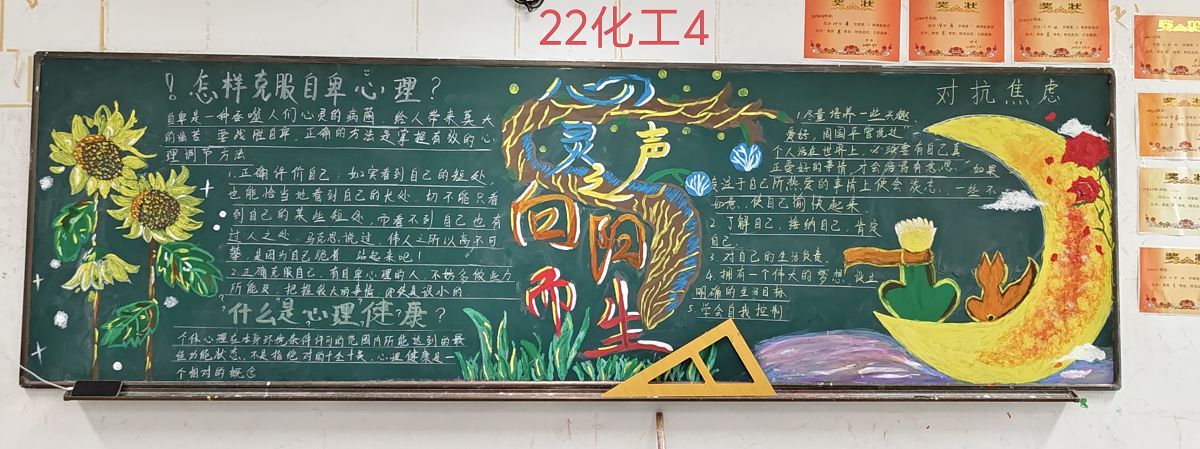 22化工4
奖状
奖状
奖状
怎样克服自卑心理？
自卑是一种吞噬人们心灵的病菌 给人带来莫大
的痛苦 要战胜自卑，正确的方法是掌握有效的心
理调节方法
1.正确评价自己：如实看到自己的短处，
也能恰当地看到自己的长处，切不能只看
到自己的某些短处 而看不到自己也有
过人之处 马克思说过 伟人之所以高不可
攀，是因为自己跪着 站起来吧！
2.正确克服自己，有自卑心理的人，不妨多做些力
所能及 把握较大的事情
什么是心理健康？
个体心理在本身环境条件许可的范围内所能达到的最
佳功能状态，不是指绝对的十全十美，心理健康是一
个相对的概念
灵声
之
向阳
而生
对抗焦虑
1.尽量培养一些兴趣
爱好，周国平曾说过“一
个人活在世界上，必须要有自己真
正爱好的事情，才会活得有意思。”如果
专注于自己所热爱的事情上便会淡忘 一些不
如意，使自己愉快起来
2.了解自己，接纳自己，肯定
自己
3.对自己的生活负责
4.拥有一个伟大的梦想，设立
明确的生活目标
5.学会自我控制